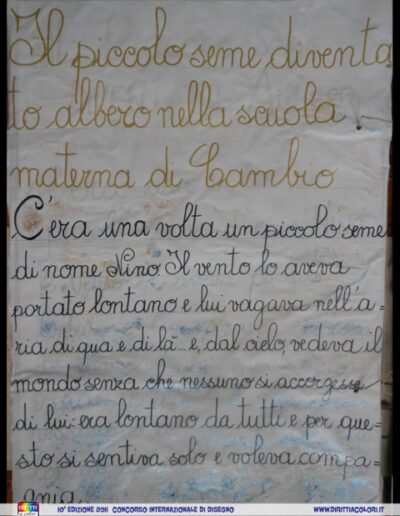 Il piccolo seme diventa
to albero nella scuola
materna di Cambio
C'era una volta un piccolo seme
di nome Nino Il vento lo aveva
portato lontano e lui vagava nell'a=
ria di qua e di là... e, dal cielo, vedeva il
mondo senza che nessuno si accorgesse
di lui: era lontano da tutti e per que=
sto si sentiva solo e voleva compa=
gnia.
10° EDIZIONE 2011 CONCORSO INTERNAZIONALE DI DISEGNO WWW.DIRITTIACOLORI.IT